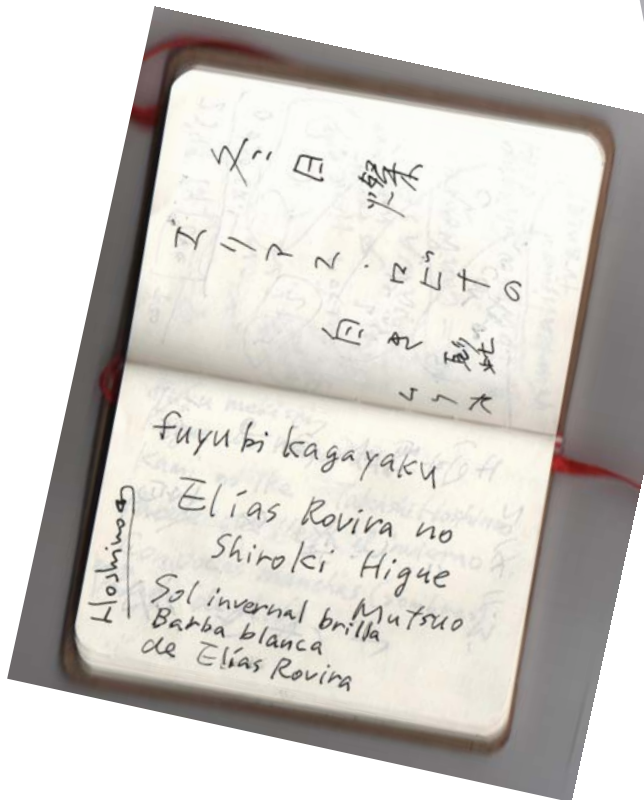 冬日燦
エリアス・ロビラの
白き髭
ムツオ
fuyubi kagayaku
Elías Rovira no
Shiroki Higue
Mutsuo
Sol invernal brilla
Barba blanca
de Elías Rovira